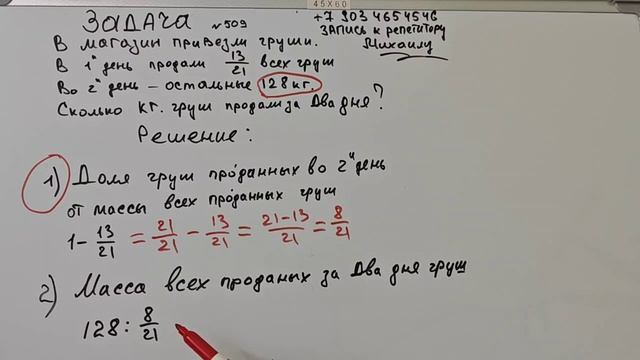 45X60
ЗАДАЧА №509
+7 903 4654546
ЗАПИСЬ К РЕПЕТИТОРУ
Михаилу
В магазин привезли груши.
В 1й день продали 13/21 всех груш
Во 2й день – остальные 128 кг.
Сколько кг. груш продали за Два дня?
Решение:
1) Доля груш проданных во 2й день
от массы всех проданных груш
1 - 13/21 = 21/21 - 13/21 = 21-13/21 = 8/21
2) Масса всех проданых за Два дня груш
128 : 8/21